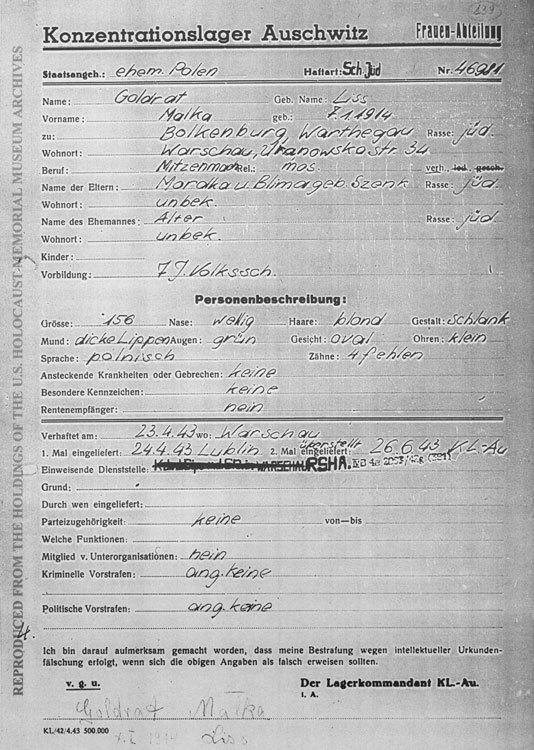 (239)
Konzentrationslager Auschwitz Frauen-Abteilung
Staatsangeh.: ehem. Polen Haftart: Sch. Jüd Nr. 46981
Name: Goldrat Geb. Name: Liss
Vorname: Malka geb.: 7.1.1914
zu: Bolkenburg, Warthegau Rasse: jüd.
Wohnort: Warschau, Uranowska str. 34
Beruf: Mitzenmach Rel.: mos. verh., led., gesch.
Name der Eltern: Mordka u. Blima geb. Szenk Rasse: jüd.
Wohnort: unbek.
Name des Ehemannes: Alter Rasse: jüd
Wohnort: unbek.
Kinder:
Vorbildung: 7 J. Volkssch.
Personenbeschreibung:
Grösse: 156 Nase: wellig Haare: blond Gestalt: schlank
Mund: dicke Lippen Augen: grün Gesicht: oval Ohren: klein
Sprache: polnisch Zähne: 4 fehlen
Ansteckende Krankheiten oder Gebrechen: keine
Besondere Kennzeichen: keine
Rentenempfänger: nein
Verhaftet am: 23.4.43 wo: Warschau
1. Mal eingeliefert: 24.4.43 Lublin 2. Mal eingeliefert: überstellt 26.6.43 KL-Au
Einweisende Dienststelle: RSHA.
Grund:
Durch wen eingeliefert:
Parteizugehörigkeit: keine von—bis
Welche Funktionen:
Mitglied v. Unterorganisationen: nein
Kriminelle Vorstrafen: ang. keine
Politische Vorstrafen: ang. keine
Ich bin darauf aufmerksam gemacht worden, dass meine Bestrafung wegen intellektueller Urkunden-
fälschung erfolgt, wenn sich die obigen Angaben als falsch erweisen sollten.
v. g. u. Der Lagerkommandant KL.-Au.
i. A.
Goldrat Malka
Liss
KL/42/4.43 500.000
REPRODUCED FROM THE HOLDINGS OF THE U.S. HOLOCAUST MEMORIAL MUSEUM ARCHIVES